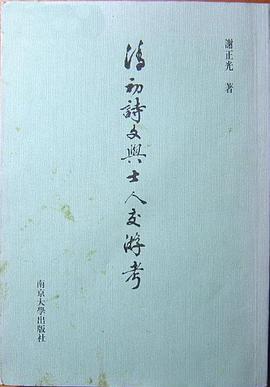 謝正光 著
清初詩文與士人交游考
南京大學出版社